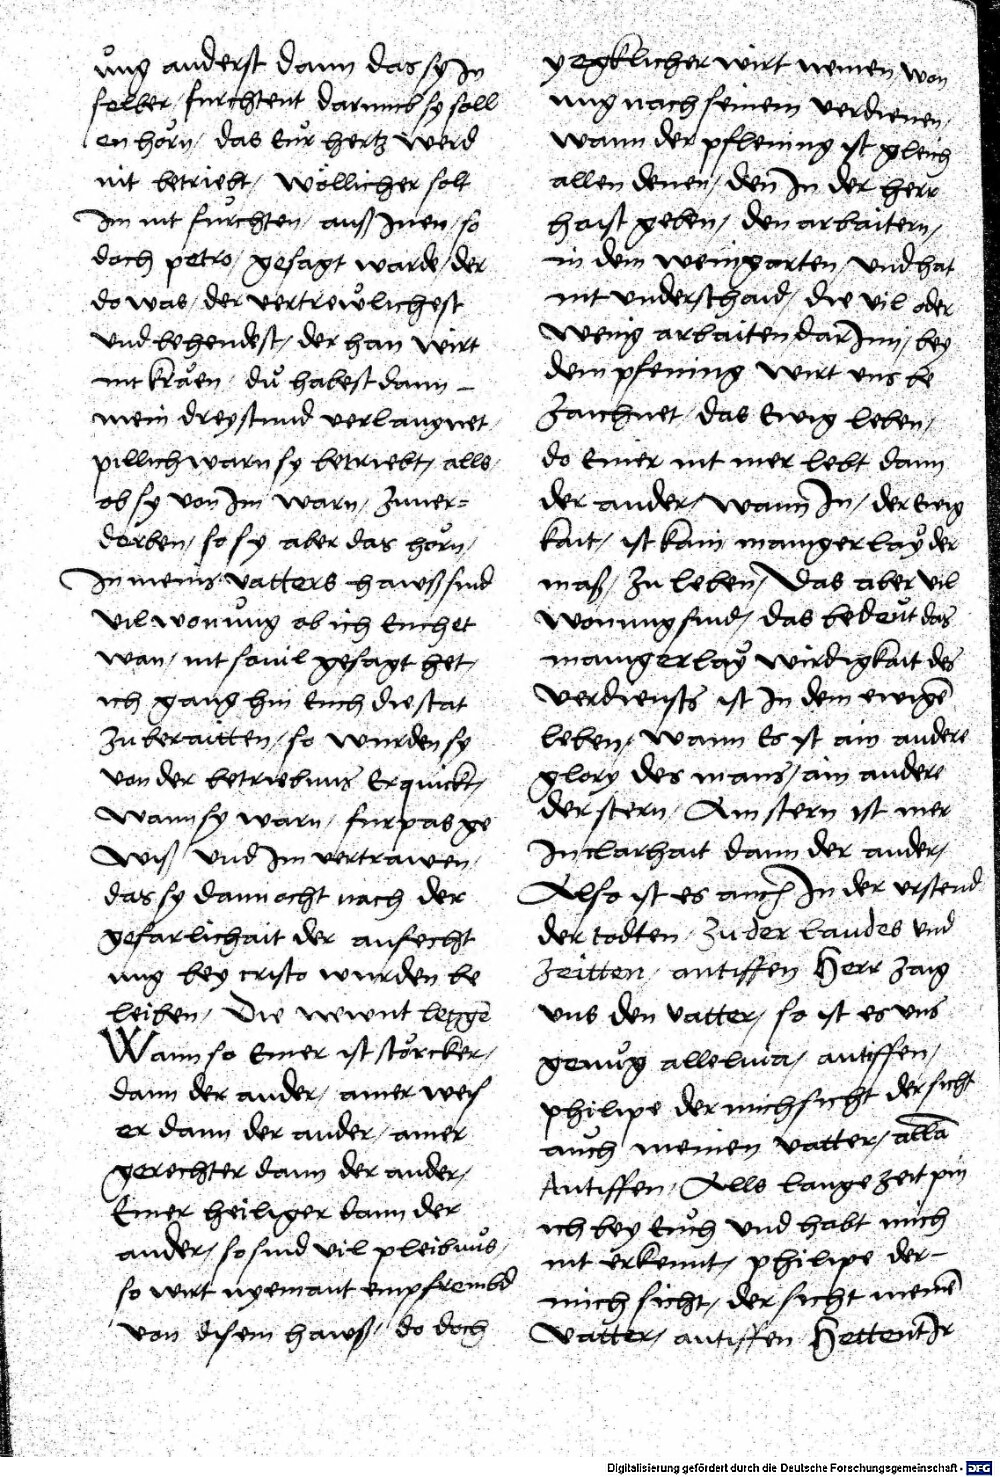 ůng anderst dann das sy In
selber furchtent darumb sy soll
en hórn / das Eur hertz werd
nit betriebt / Wöllicher solt
Im nit fürchten / auß Inen / so
doch petro / gesagt warde / der
do was / der vertrewlichest
vnd behendest / der han wirt
nit kräen / dů habest dann –
mein dreystund verlaugnet
pillich warn sy betriebt / alls
ob sy von Im warn / Zuuer=
derben / so sy aber das hórn /
In meins vatters hawß sind
vil wonůng ob ich Euch et
wan / nit souil gesagt het /
ich gang hin Euch die stat
zu beraitten / so wurden sy
von der betriebnus Erquickt /
wann sy warn / furpas ge
wiß vnd Im vertrawen /
das sy dannocht nach der
gefarlichait der anfecht
ung bey cristo wurden be
leiben / Die newnt leczge
Wann so Einer ist störcker /
dann der ander / ainer weis
er dann der ander / ainer
gerechter dann der ander /
Einer heiliger dann der
ander / so sind vil pleibnus /
so wirt nyemant empfrembd
von disem hawß / do doch
yegklicher wirt nemen / won
ung nach seinem verdienen /
wann der pfening ist gleich
allen denen / den In der herr
haist geben / den arbaitern /
in dem weingarten / vnd hat
nit vnderschaid / die vil oder
wenig arbaiten dar Inn / bey
dem pfening wirt vns be
zaichnet / das Ewig leben /
do Einer nit mer lebt dann
der ander / wann In / der Ewig
kait / ist kain maniger lay der
mass / zu leben / Das aber vil
wonung sind / das bedeut das
maniger lay wirdigkait des
verdiensts ist In dem ewigē
leben / wann Es ist ain andere
glory des mans / ain andere
der stern / Ain stern ist mer
In clarhait dann der ander /
Also ist es auch In der vrstend
der todten / Zu der laudes vnd
zeitten / antiffen Herr zaig
vns den vatter / so ist es vns
genůg alleluia / antiffen /
philipe der mich sicht der sicht
auch meinen vatter / alla
Antiffen / Alls lange zeit pin
ich bey Euch vnd habt mich
nit erkennt / philipe der –
mich sicht / der sicht meinē
vatter / antiffen Hettent Ir
Digitalisierung gefördert durch die Deutsche Forschungsgemeinschaft - DFG